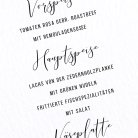 Vorspeise
TOMATEN ROSA GEBR. ROASTBEEF
MIT REMOULADENSOSSE
Hauptspeise
LACHS VON DER ZEDERNHOLZPLANKE
MIT GRÜNEN NUDELN
FRITTIERTE FISCHSPEZIALITÄTEN
MIT SALAT
Käseplatte